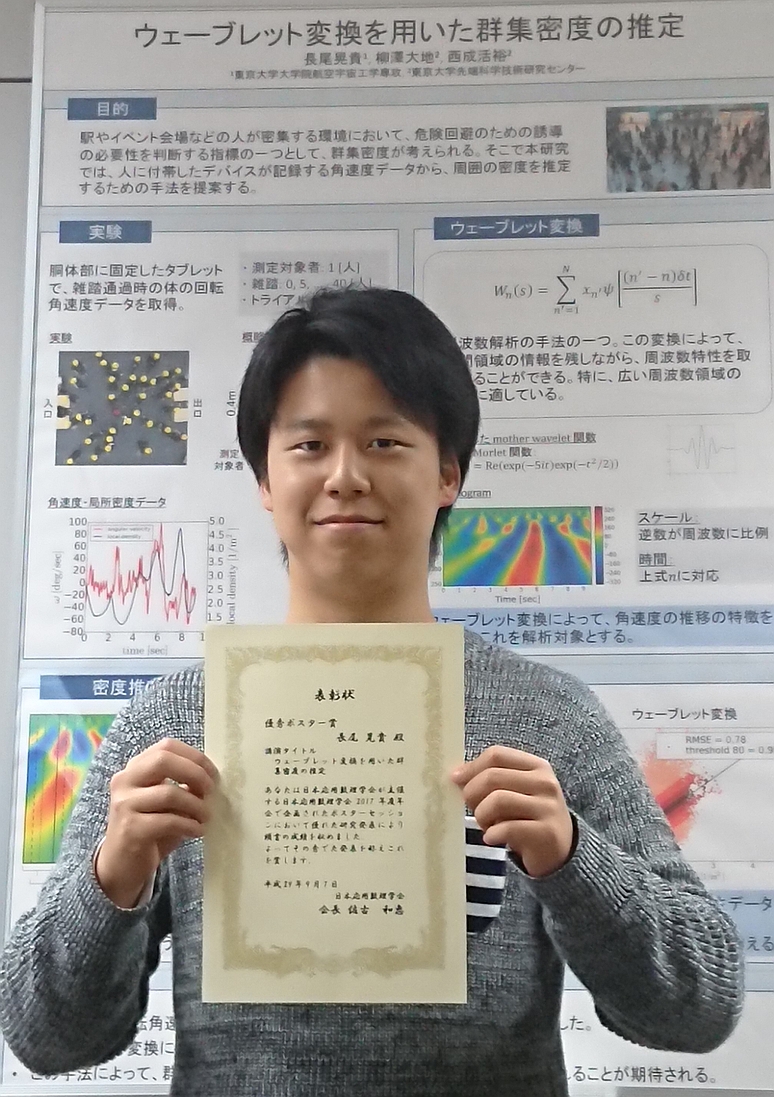 ウェーブレット変換を用いた群集密度の推定
長尾晃貴¹, 柳澤大地², 西成活裕²
¹東京大学大学院航空宇宙工学専攻, ²東京大学先端科学技術研究センター
目的
駅やイベント会場などの人が密集する環境において、危険回避のための誘導
の必要性を判断する指標の一つとして、群集密度が考えられる。そこで本研究
では、人に付帯したデバイスが記録する角速度データから、周囲の密度を推定
するための手法を提案する。
実験
胴体部に固定したタブレット
で、雑踏通過時の体の回転
角速度データを取得。
・測定対象者: 1 [人]
・雑踏: 0, 5, ... 40 [人]
・トライアル
実験
概略
入口
出口
0.4m
測定
対象者
角速度-局所密度データ
angular velocity
local density
ω [deg/sec]
100
80
60
40
20
0
−20
−40
−60
−80
0 2 4 6 8
time [sec]
5.0
4.5
4.0
3.5
3.0
2.5
2.0
1.5
local density [1/m²]
ウェーブレット変換
Wₙ(s) = Σ xₙ′ψ[(n′ − n)δt / s]
N
n′=1
波数解析の手法の一つ。この変換によって、
間領域の情報を残しながら、周波数特性を取
ることができる。特に、広い周波数領域の
に適している。
た mother wavelet 関数
Morlet 関数
= Re(exp(−5it)exp(−t²/2))
ogram
Time [sec]
スケール:
逆数が周波数に比例
時間:
上式nに対応
ェーブレット変換によって、角速度の推移の特徴を
これを解析対象とする。
密度推
ウェーブレット変換
RMSE = 0.78
threshold 80 = 0.9
たデータ
える
表彰状
優秀ポスター賞
長尾 晃貴 殿
講演タイトル
ウェーブレット変換を用いた群
集密度の推定
あなたは日本応用数理学会が主催
する日本応用数理学会 2017 年度年
会で企画されたポスターセッショ
ンにおいて優れた研究発表により
頭書の成績を収めました
よってその卓でた発表を称えこれ
を賞します.
平成29年9月7日
日本応用数理学会
会長 佐古 和恵
転角速
した。
変換に
・この手法によって、群
ることが期待される。